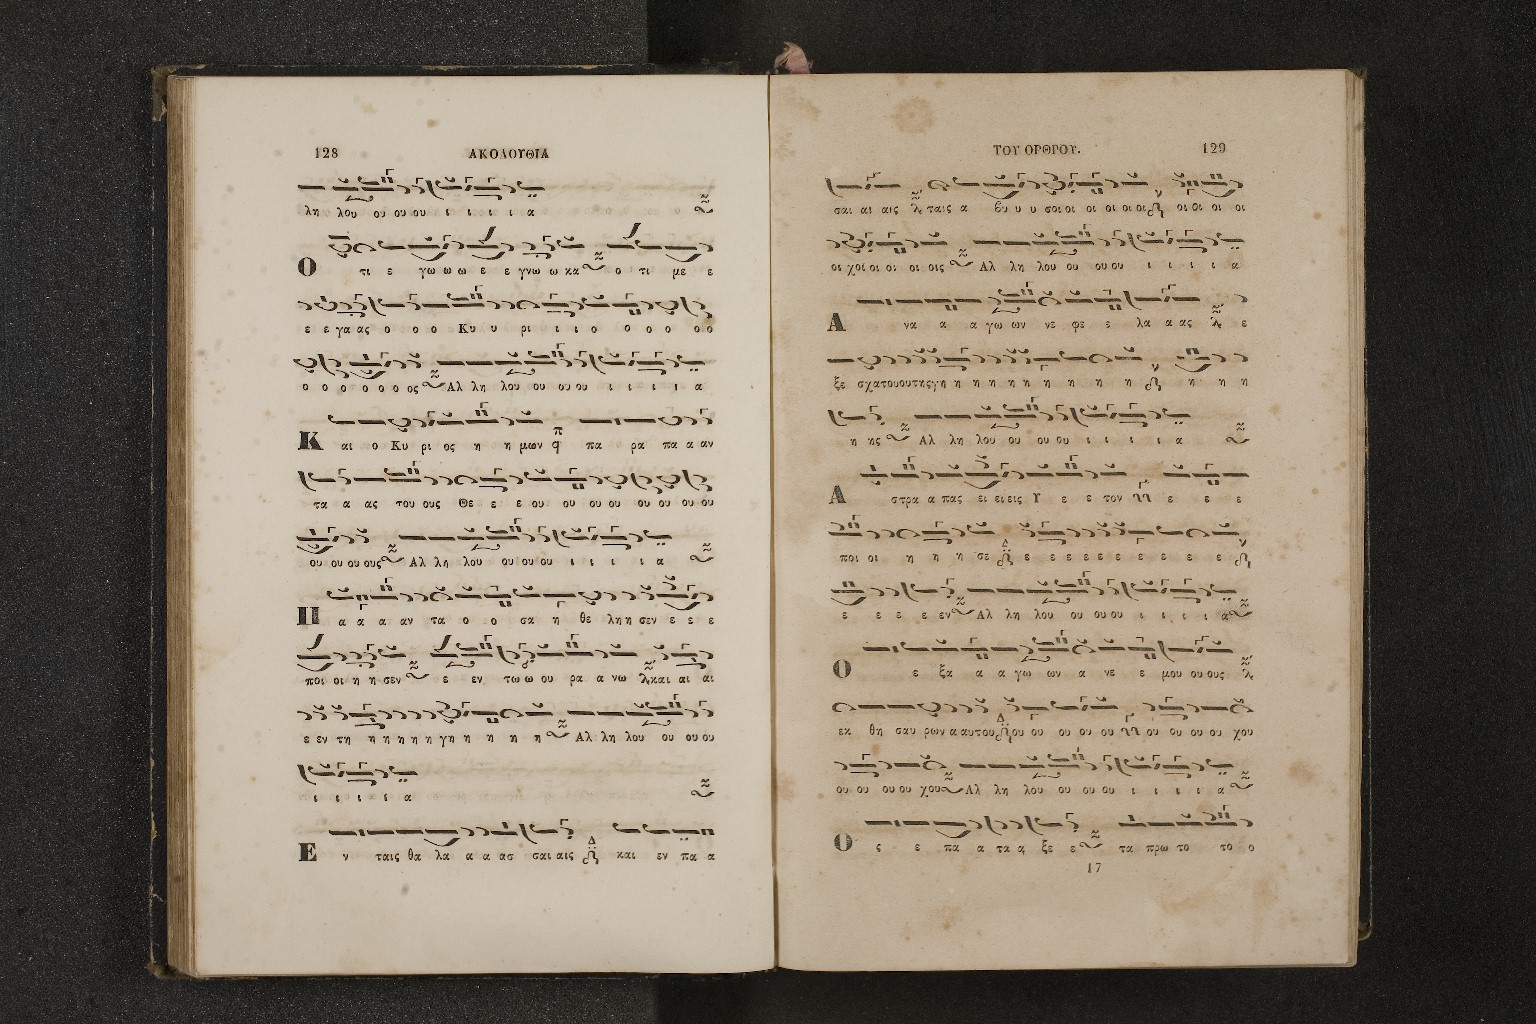 128 ΑΚΟΛΟΥΘΙΑ
λη λου ου ου ου ι ι ι ι α
Ο τι ε γω ω ω ε ε γνω ω κα ο τι με ε
ε ε γα ας ο ο ο Κυ υ ρι ι ι ο ο ο ο ο ο
ο ο ο ο ο ο ος Αλ λη λου ου ου ου ι ι ι ι α
Κ αι ο Κυ ρι ος η η μων πα ρα πα α αν
τα α ας του ους Θε ε ε ου ου ου ου ου ου ου ου
ου ου ου ους Αλ λη λου ου ου ου ι ι ι ι α
Π α α α αν τα ο ο σα η θε λη η σεν ε ε ε
ποι οι η η σεν ε εν τω ω ου ρα α νω και αι αι
ε εν τη η η η η η γη η η η η Αλ λη λου ου ου ου
ι ι ι ι α
Ε ν ταις θα λα α α ασ σαι αις και εν πα α
ΤΟΥ ΟΡΘΡΟΥ. 129
σαι αι αις ταις α βυ υ υ σοι οι οι οι οι οι οι οι οι οι
οι χοι οι οι οι οις Αλ λη λου ου ου ου ι ι ι ι α
Α να α α γω ων νε φε ε λα α ας ε
ξε σχα του ου της γη η η η η η η η η η η η η η
η ης Αλ λη λου ου ου ου ι ι ι ι α
Α στρα α πας ει ει εις Υ ε ε τον ε ε ε
ποι οι η η η σε ε ε ε ε ε ε ε ε ε ε ε
ε ε ε ε εν Αλ λη λου ου ου ου ι ι ι ι α
Ο ε ξα α α γω ων α νε ε μου ου ους
εκ θη σαυ ρων α αυτου ου ου ου ου ου ου ου ου ου χου
ου ου ου ου χου Αλ λη λου ου ου ου ι ι ι ι α
Ο ς ε πα α τα α ξε ε τα πρω το το ο
17